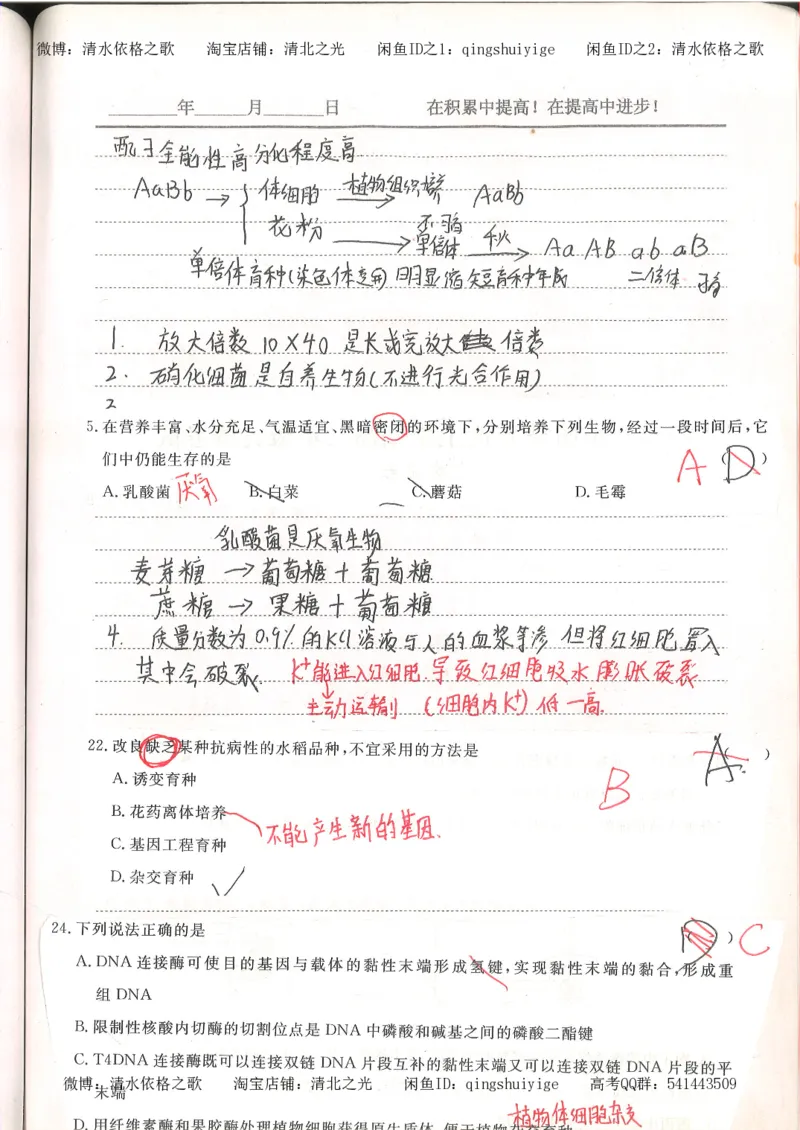 微博：清水依格之歌 淘宝店铺：清北之光 闲鱼ID之1：qingshuiyige 闲鱼ID之2：清水依格之歌
年 月 日 在积累中提高！在提高中进步！
配子全能性高分化程度高
AaBb → { 体细胞 植物组织培养 → AaBb
花粉 → 不育 单倍体 秋 → Aa AB ab aB
单倍体育种(染色体变异) 明显缩短育种年限 二倍体 可育
1. 放大倍数 10×40 是长或宽放大 倍数
2. 硝化细菌是自养生物(不进行光合作用)
2
5. 在营养丰富、水分充足、气温适宜、黑暗密闭的环境下，分别培养下列生物，经过一段时间后，它
们中仍能生存的是 A (D)
A. 乳酸菌 厌氧 B. 白菜 C. 蘑菇 D. 毛霉
乳酸菌是厌氧生物
麦芽糖 → 葡萄糖 + 葡萄糖
蔗糖 → 果糖 + 葡萄糖
4. 质量分数为0.9%的KCl溶液与人的血浆等渗 但将红细胞置入
其中会破裂. K⁺能进入红细胞.导致红细胞吸水膨胀破裂
主动运输 (细胞内K⁺) 低→高.
22. 改良缺乏某种抗病性的水稻品种，不宜采用的方法是 (A)
A. 诱变育种 B
B. 花药离体培养 不能产生新的基因.
C. 基因工程育种
D. 杂交育种
24. 下列说法正确的是 (D) C
A. DNA 连接酶可使目的基因与载体的黏性末端形成氢键，实现黏性末端的黏合，形成重
组 DNA
B. 限制性核酸内切酶的切割位点是 DNA 中磷酸和碱基之间的磷酸二酯键
C. T4DNA 连接酶既可以连接双链 DNA 片段互补的黏性末端又可以连接双链 DNA 片段的平
末端
微博：清水依格之歌 淘宝店铺：清北之光 闲鱼ID：qingshuiyige 高考QQ群：541443509
植物体细胞杂交
D. 用纤维素酶和果胶酶处理植物细胞获得原生质体，便于植物杂交育种